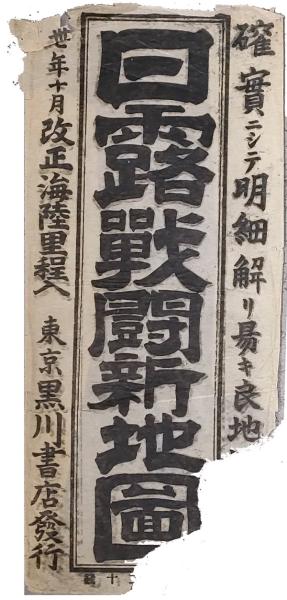 確實ニシテ明細解リ易キ良地
日露戰闘新地圖
卅七年十月改正海陸里程入 東京黒川書店發行